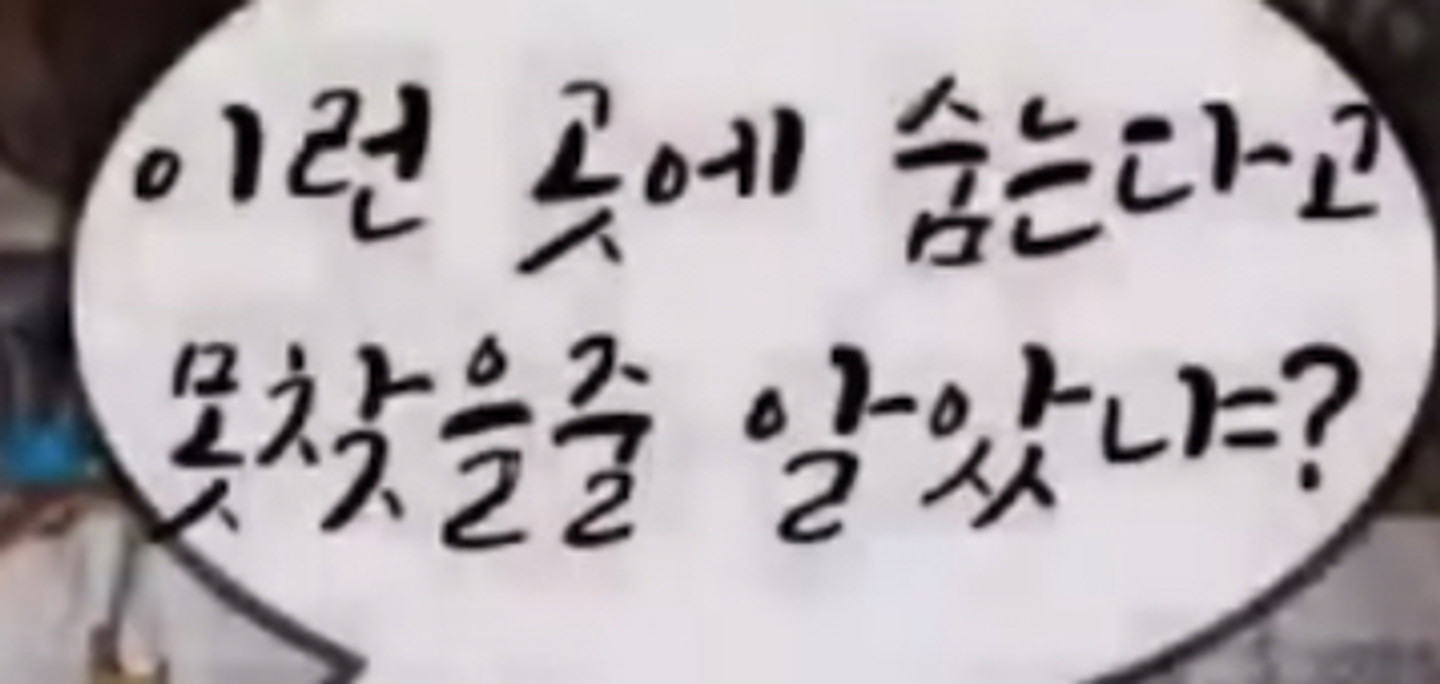 이런 곳에 숨는다고
못찾을줄 알았냐=?